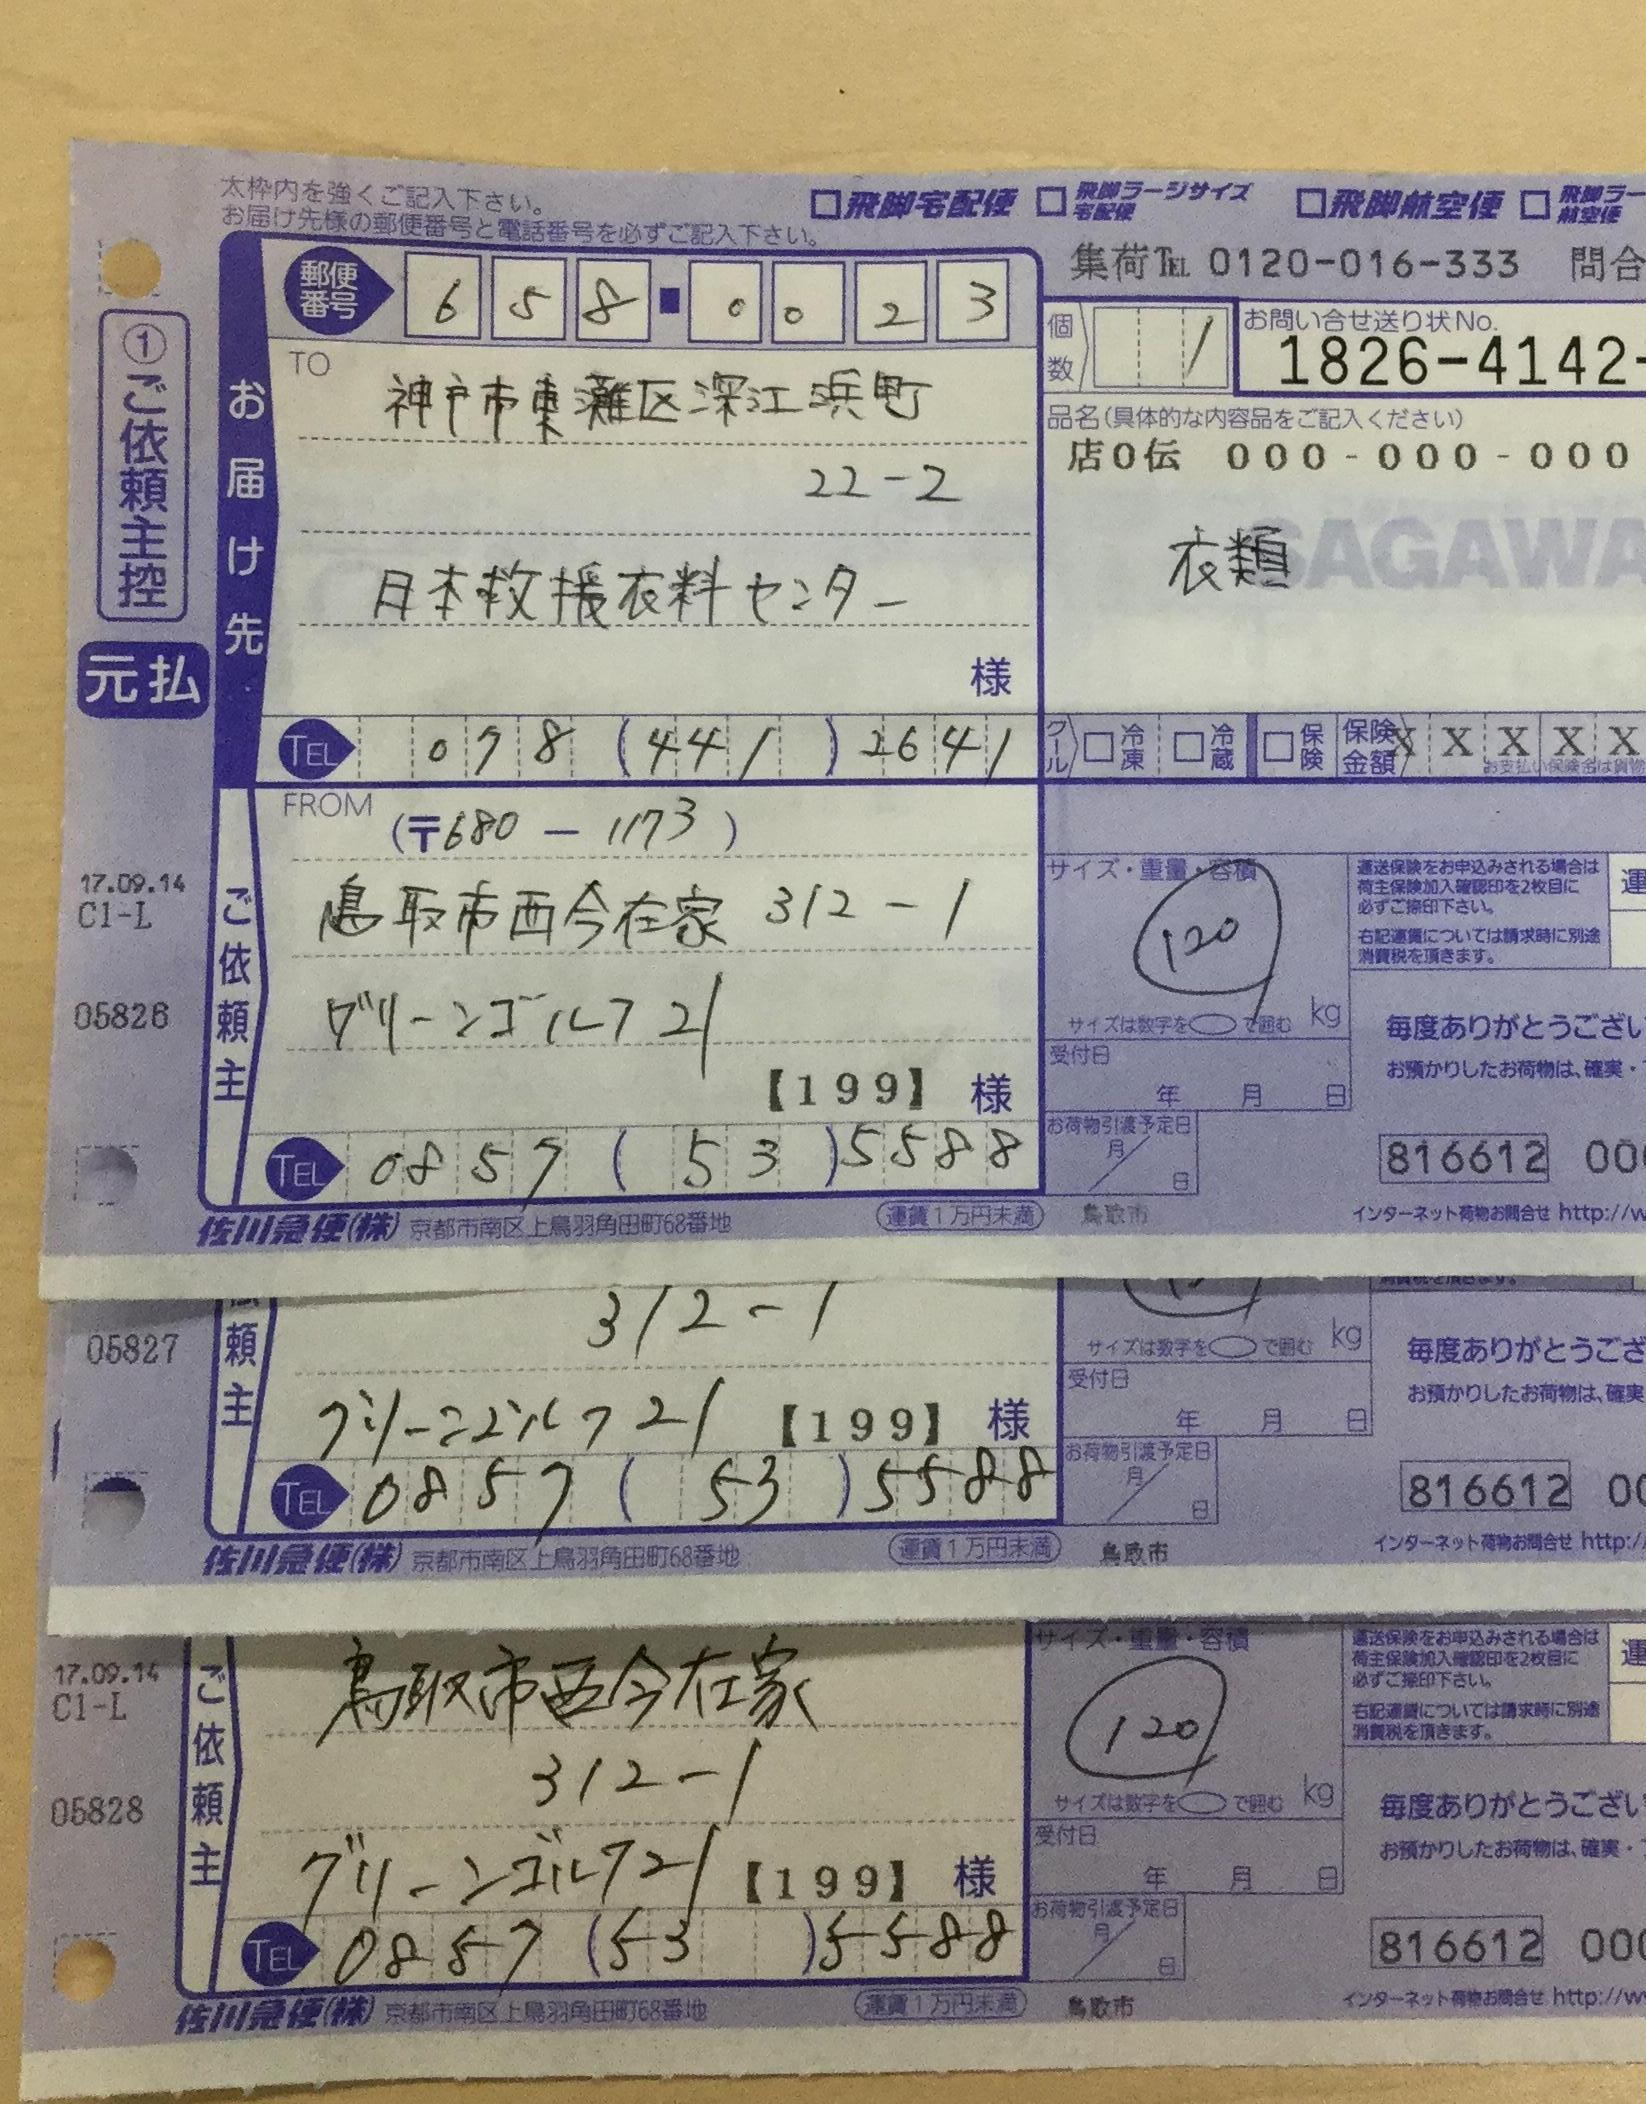 大枠内を強くご記入下さい。
お届け先様の郵便番号と電話番号を必ずご記入下さい。
①ご依頼主控
元払
お届け先
郵便番号
658-0023
TO
神戸市東灘区深江浜町
22-2
日本救援衣料センター
様
TEL 078(441)2641
ご依頼主
FROM (〒680-1173)
鳥取市西今在家 312-1
グリーンゴルフ
【199】 様
TEL 0857(53)5588
17.09.14
CI-L
05828
佐川急便(株) 京都市南区上鳥羽角田町68番地
運賃1万円未満
鳥取市
飛脚宅配便
飛脚ラージサイズ宅配便
飛脚航空便
集荷TEL 0120-016-333 問合
個数
1
お問い合せ送り状No.
1826-4142-
品名(具体的な内容品をご記入ください)
店0伝 000-000-000
衣類
SAGAWA
クール
冷凍
冷蔵
保険
保険金額
X X X X X
サイズ・重量・容積
120
サイズは数字を○で囲む
kg
受付日
年 月 日
お荷物引渡予定日
月 日
運送保険をお申込みされる場合は
荷主保険加入確認印を2枚目に
必ずご捺印下さい。
右記運賃については請求時に別途
消費税を頂きます。
毎度ありがとうござい
お預かりしたお荷物は、確実・
816612 000
インターネット荷物お問合せ http://w
05827
頼主
312-1
【199】 様
TEL 0857(53)5588
佐川急便(株) 京都市南区上鳥羽角田町68番地
運賃1万円未満
鳥取市
サイズは数字を○で囲む
kg
受付日
年 月 日
お荷物引渡予定日
月 日
毎度ありがとうござ
お預かりしたお荷物は、確
816612 00
インターネット荷物お問合せ http:/
17.09.14
CI-L
05828
ご依頼主
鳥取市西今在家
312-1
グリーンゴルフ
【199】 様
TEL 0857(53)5588
佐川急便(株) 京都市南区上鳥羽角田町68番地
運賃1万円未満
鳥取市
サイズ・重量・容積
120
サイズは数字を○で囲む
kg
受付日
年 月 日
お荷物引渡予定日
月 日
運送保険をお申込みされる場合は
荷主保険加入確認印を2枚目に
必ずご捺印下さい。
右記運賃については請求時に別途
消費税を頂きます。
毎度ありがとうござい
お預かりしたお荷物は、確実・
816612 000
インターネット荷物お問合せ http://w